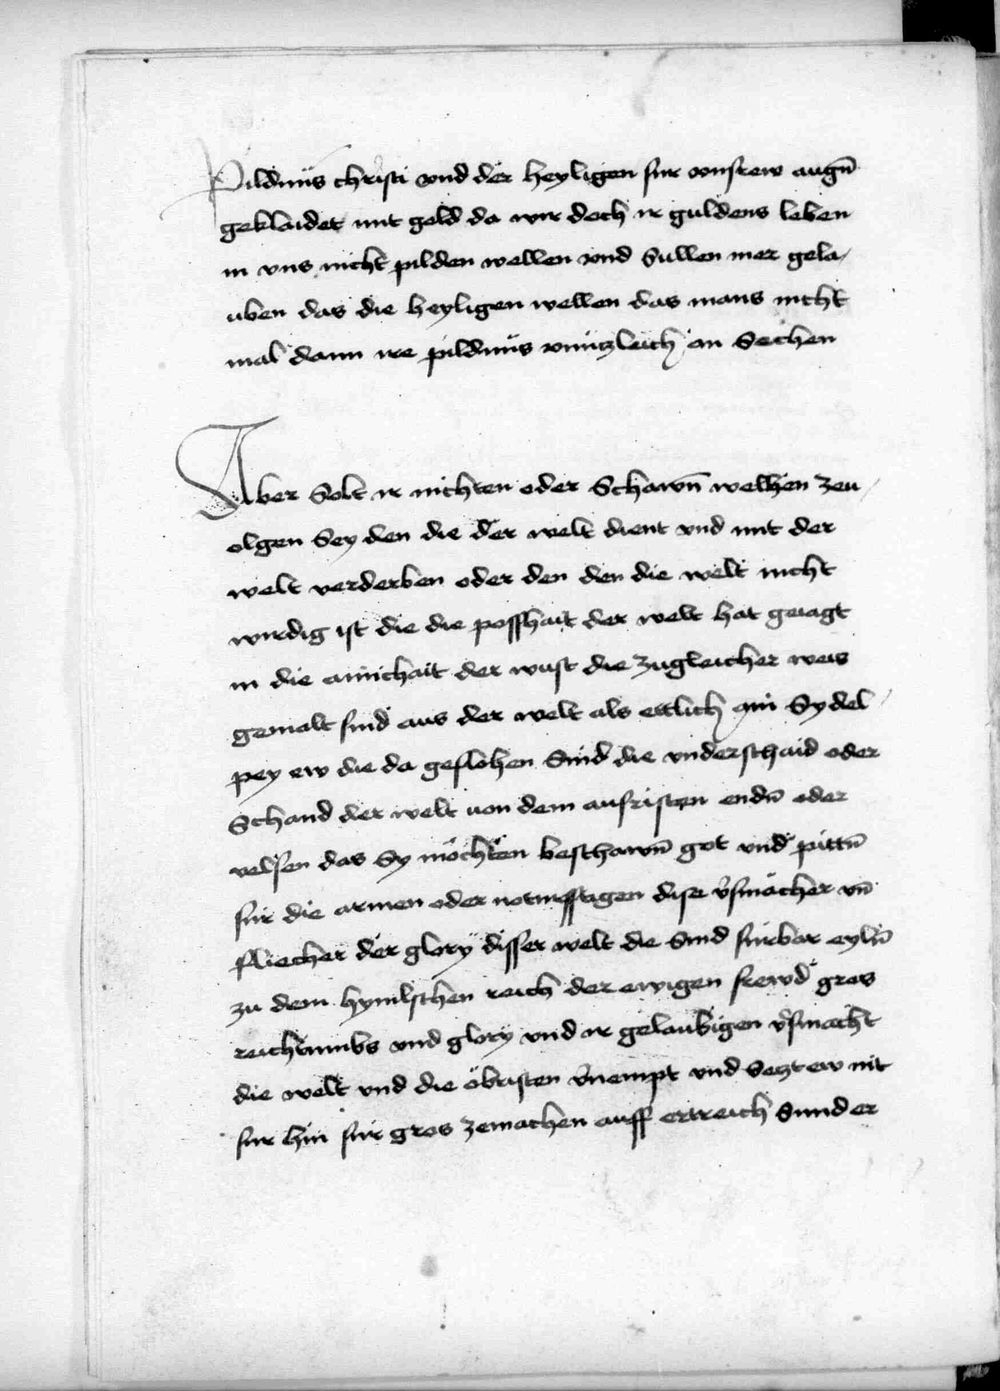 Pildnüs christi vnd der heyligen fur vnsrew augn̄
geklaidet mit gold da wir doch ir guldens leben
in vns nicht pilden wellen vnd Sullen mer gela
uben das die heyligen wellen das mans nicht
mal dann ire pildnüs vnnüczleich an Sechen
Aber Solt ir nichten oder Schawn̄ welhen zeu
olgen Sey den die der welt dient vnd mit der
welt verderben oder den den die welt nicht
wirdig ist die die posshait der welt hat geiagt
in die ainichait der wüst die zugleicher weis
gemalt sind aus der welt als ettlich ain Sydel
pey ew die da geflohen Sind die vnderschaid oder
Schand der welt von dem aufristen endn̄ oder
velsen das Sy möchten beschawn̄ got vnd pittn̄
für die armen oder notürfftigen dise v̄smächer vn̄
fliecher der glory disser welt die Sind fürbar eyln̄
zu dem hymlschen reich der ewigen frewd gros
reichtumbs vnd glory vnd ir gelaubigen v̄smacht
die welt vnd die öbristen v̄nempt vnd Seczt ew nit
fur hin für gros zemachen auff ertreich Sunder